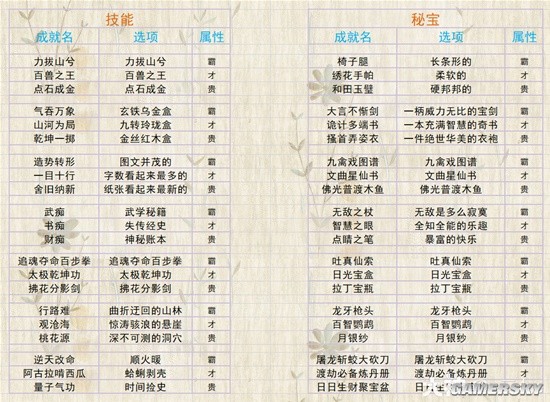 技能
成就名 选项 属性
力拔山兮 力拔山兮 霸
百兽之王 百兽之王 才
点石成金 点石成金 贵
气吞万象 玄铁乌金盒 霸
山河为局 九转玲珑盒 才
乾坤一掷 金丝红木盒 贵
造势转形 图文并茂的 霸
一目十行 字数看起来最多的 才
舍旧纳新 纸张看起来最新的 贵
武痴 武学秘籍 霸
书痴 失传经史 才
财痴 神秘账本 贵
追魂夺命百步拳 追魂夺命百步拳 霸
太极乾坤功 太极乾坤功 才
拂花分影剑 拂花分影剑 贵
行路难 曲折迂回的山林 霸
观沧海 惊涛骇浪的悬崖 才
桃花源 深不可测的洞穴 贵
逆天改命 顺火暖 霸
阿古拉啃西瓜 蛤蜊剥壳 才
量子气功 时间捡史 贵
秘宝
成就名 选项 属性
椅子腿 长条形的 霸
绣花手帕 柔软的 才
和田玉璧 硬邦邦的 贵
大言不惭剑 一柄威力无比的宝剑 霸
诡计多端书 一本充满智慧的奇书 才
搔首弄姿衣 一件绝世华美的衣袍 贵
九禽戏图谱 九禽戏图谱 霸
文曲星仙书 文曲星仙书 才
佛光普渡木鱼 佛光普渡木鱼 贵
无敌之杖 无敌是多么寂寞 霸
智慧之眼 全知全能的乐趣 才
点睛之笔 暴富的快乐 贵
吐真仙索 吐真仙索 霸
日光宝盒 日光宝盒 才
拉丁宝瓶 拉丁宝瓶 贵
龙牙枪头 龙牙枪头 霸
百智鹦鹉 百智鹦鹉 才
月银纱 月银纱 贵
屠龙斩蛟大砍刀 屠龙斩蛟大砍刀 霸
渡劫必备炼丹册 渡劫必备炼丹册 才
日日生财聚宝盆 日日生财聚宝盆
GAMERSKY